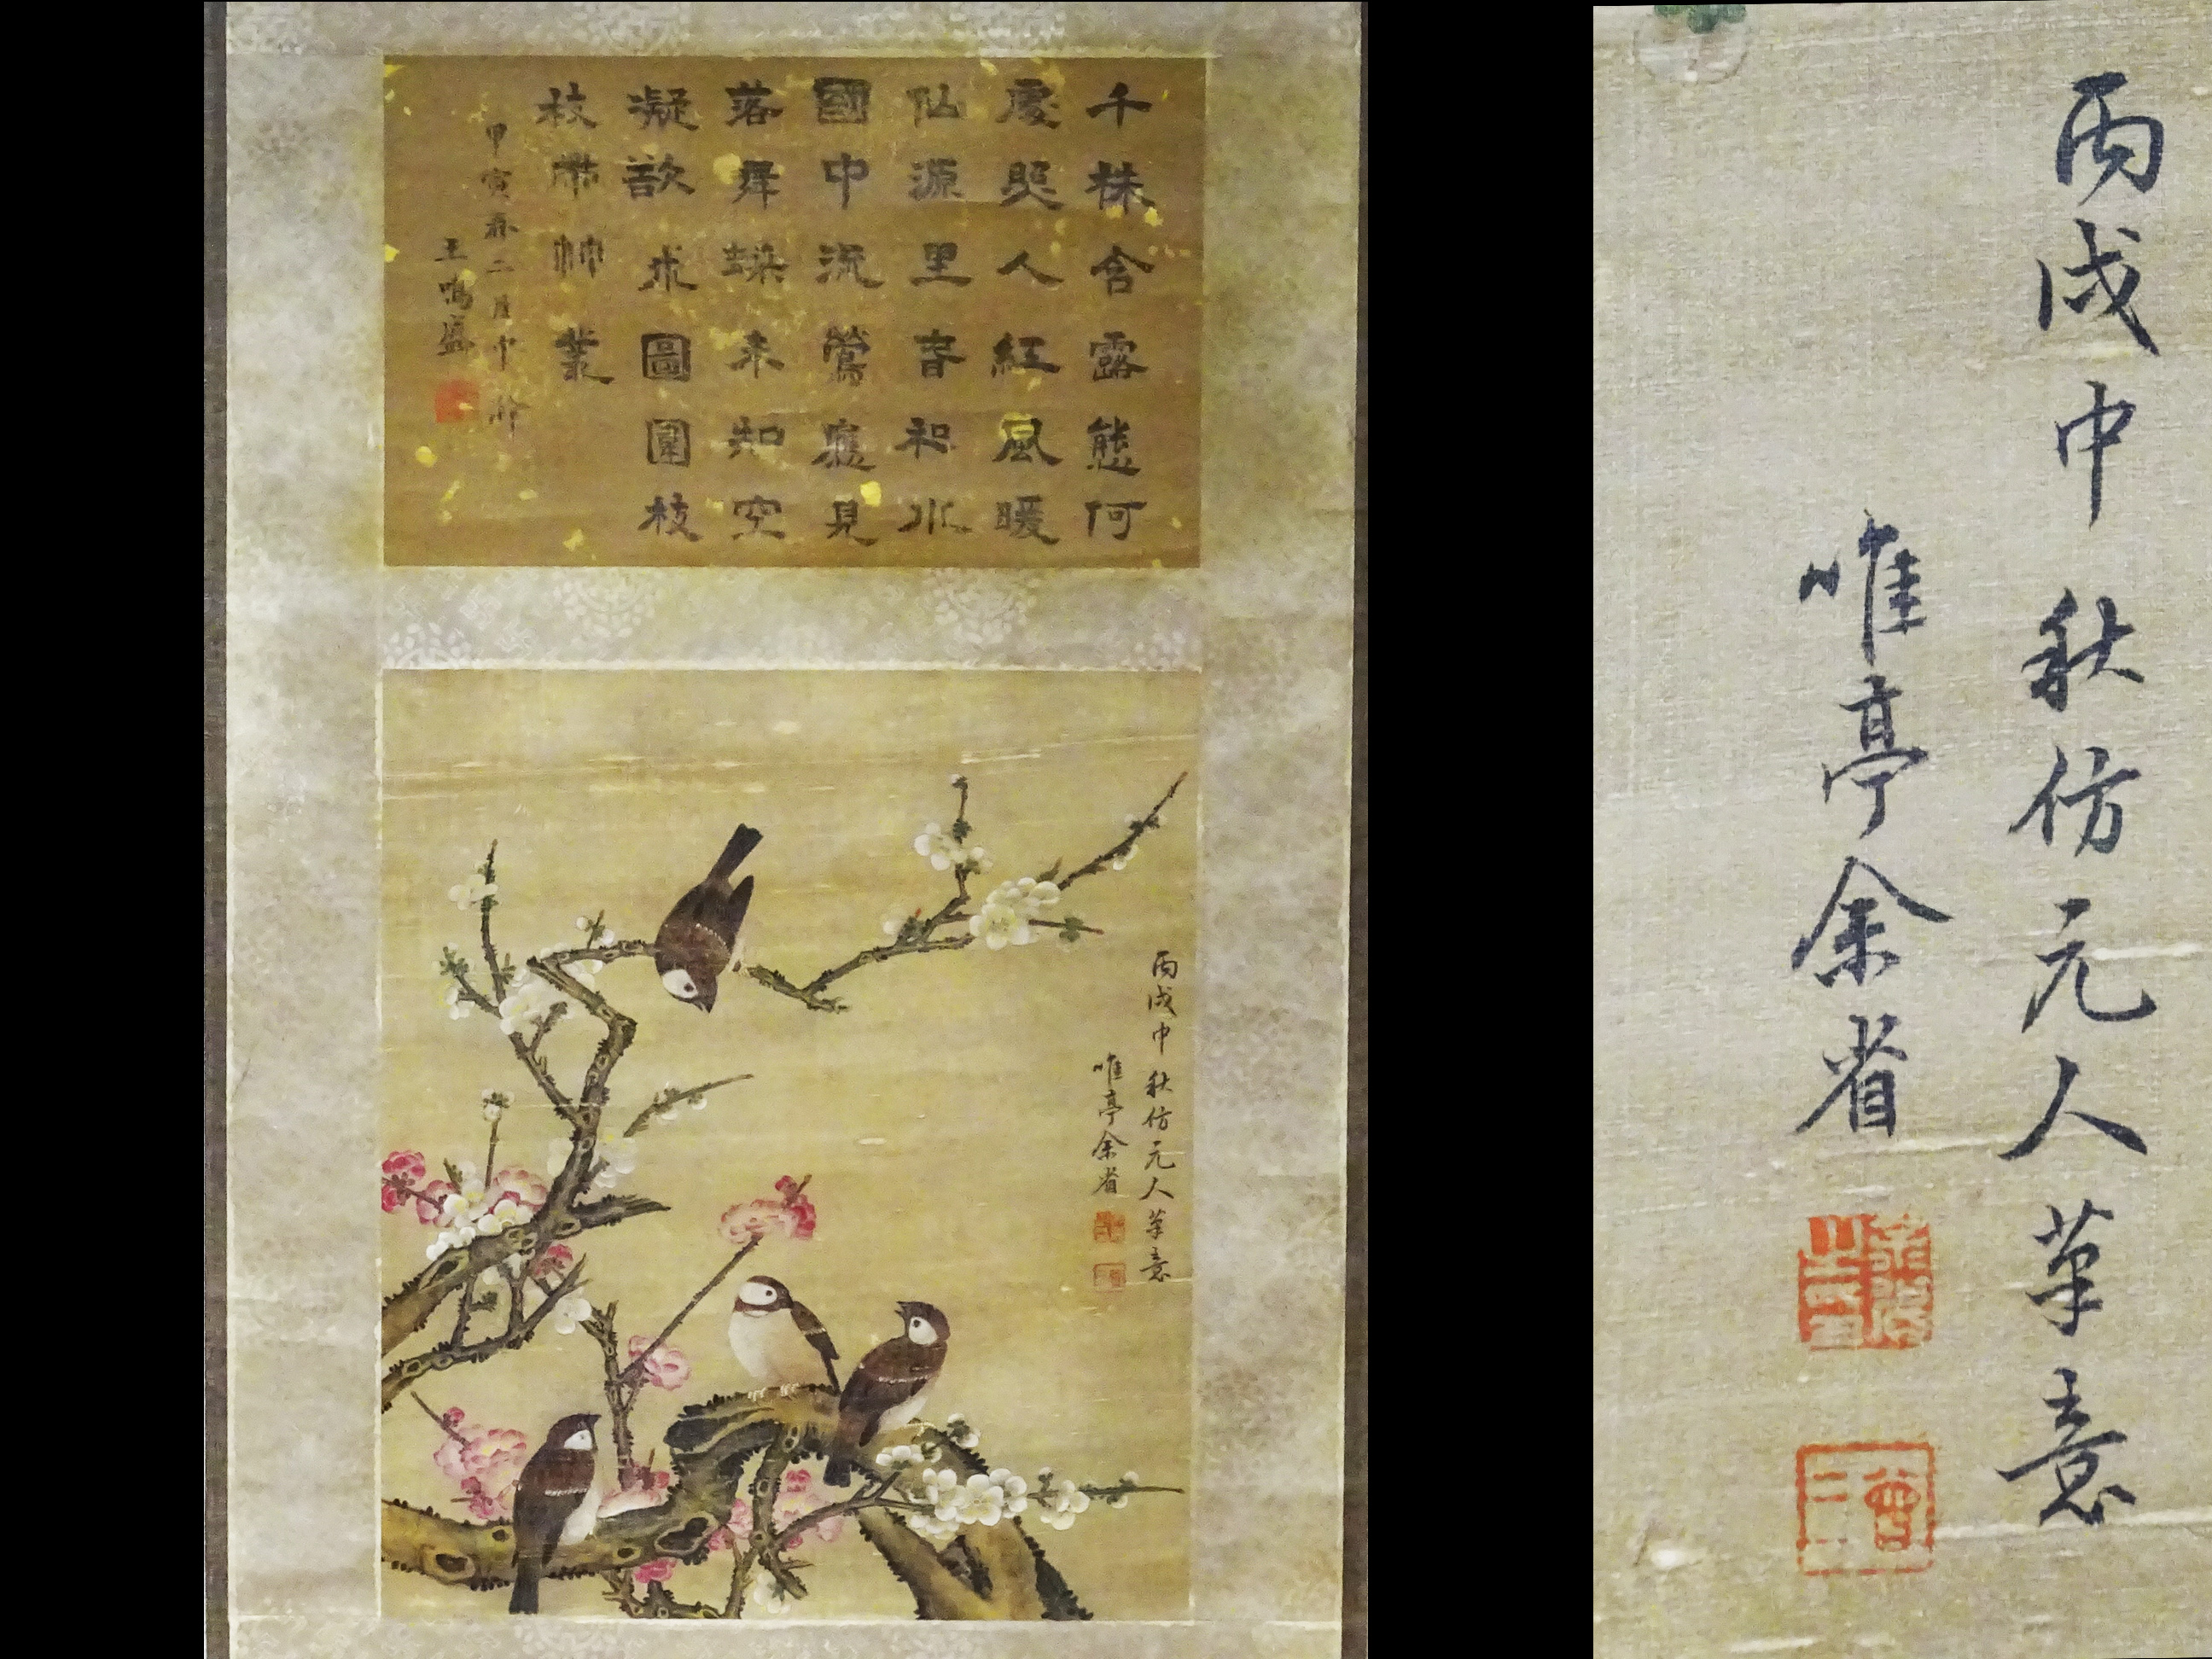 千株含露態何
處照人紅風暖
仙源里春和水
國中流鶯應見
落舞蝶未知空
擬欲求圖圍枝
枝帶帥叢
甲寅春二月中
王鳴盛
丙戌中秋仿元人筆意
唯亭余省
丙戌中秋仿元人筆意
唯亭余省
曾三